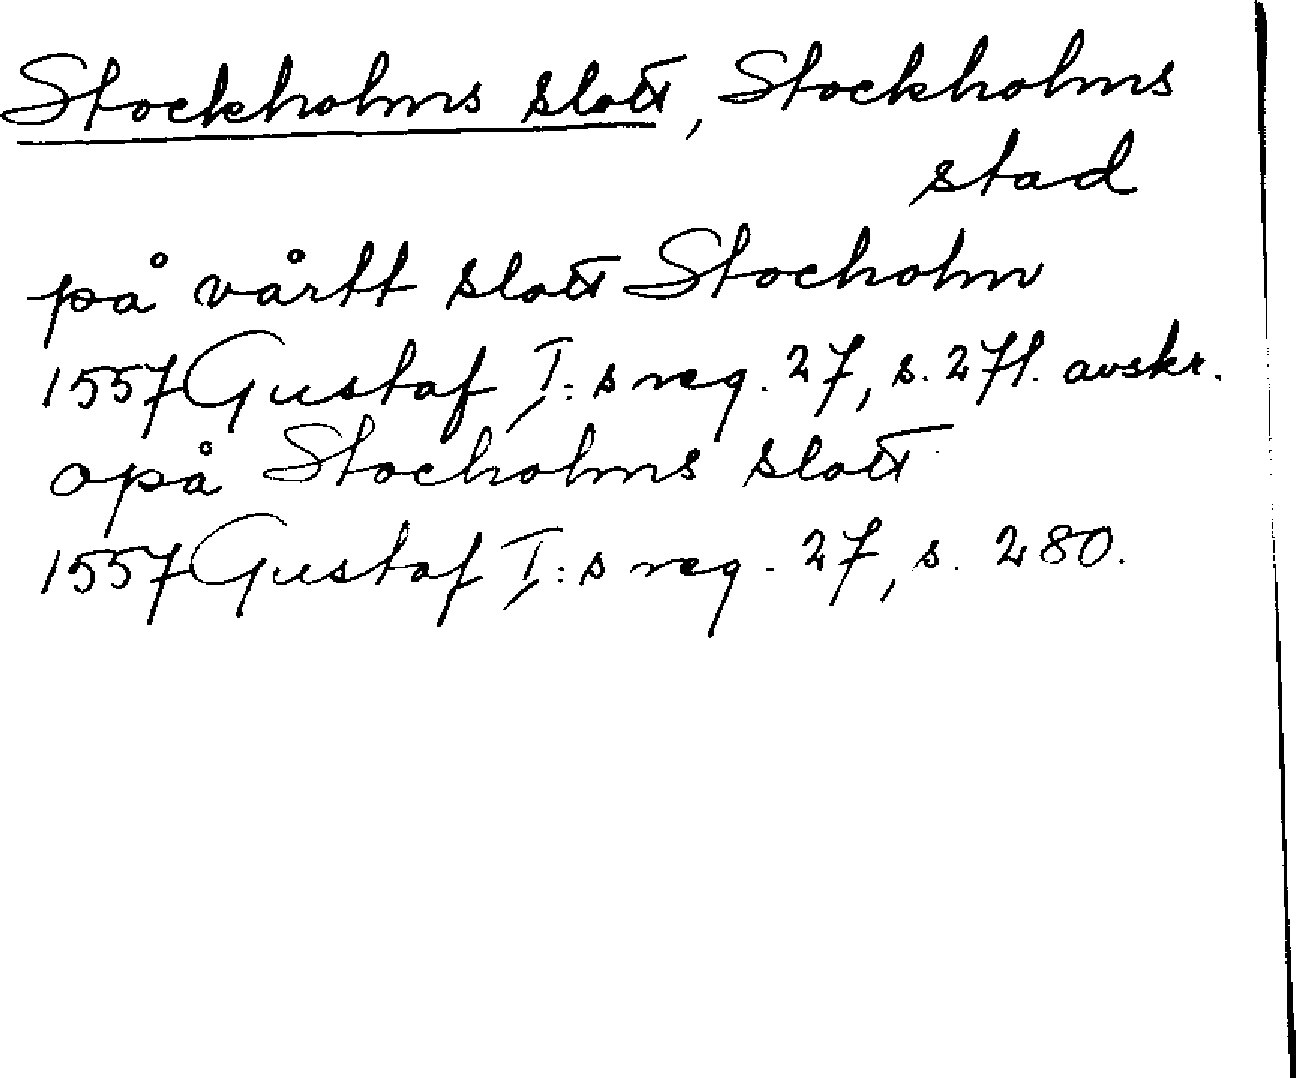 Stockholms slott, Stockholms
stad
på vårtt slott Stocholm
1557 Gustaf I:s reg. 27, s. 271. avskr.
opå Stocholms slott
1557 Gustaf I:s reg. 27, s. 280.